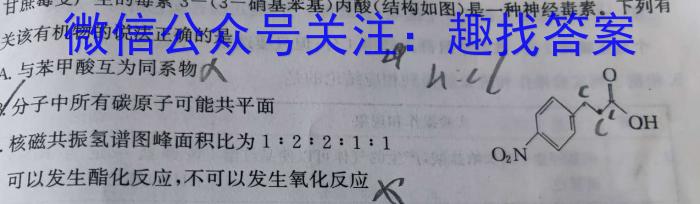 甘蔗霉变产生的毒素3-(3-硝基苯基)丙酸(结构如图)是一种神经毒素。下列有
关该有机物的说法正确的是
微信公众号关注：趣找答案
A.与苯甲酸互为同系物
.分子中所有碳原子可能共平面
.核磁共振氢谱图峰面积比为1：2：2：1：1
可以发生酯化反应,不可以发生氧化反应
O
OH
O₂N
C
C
C